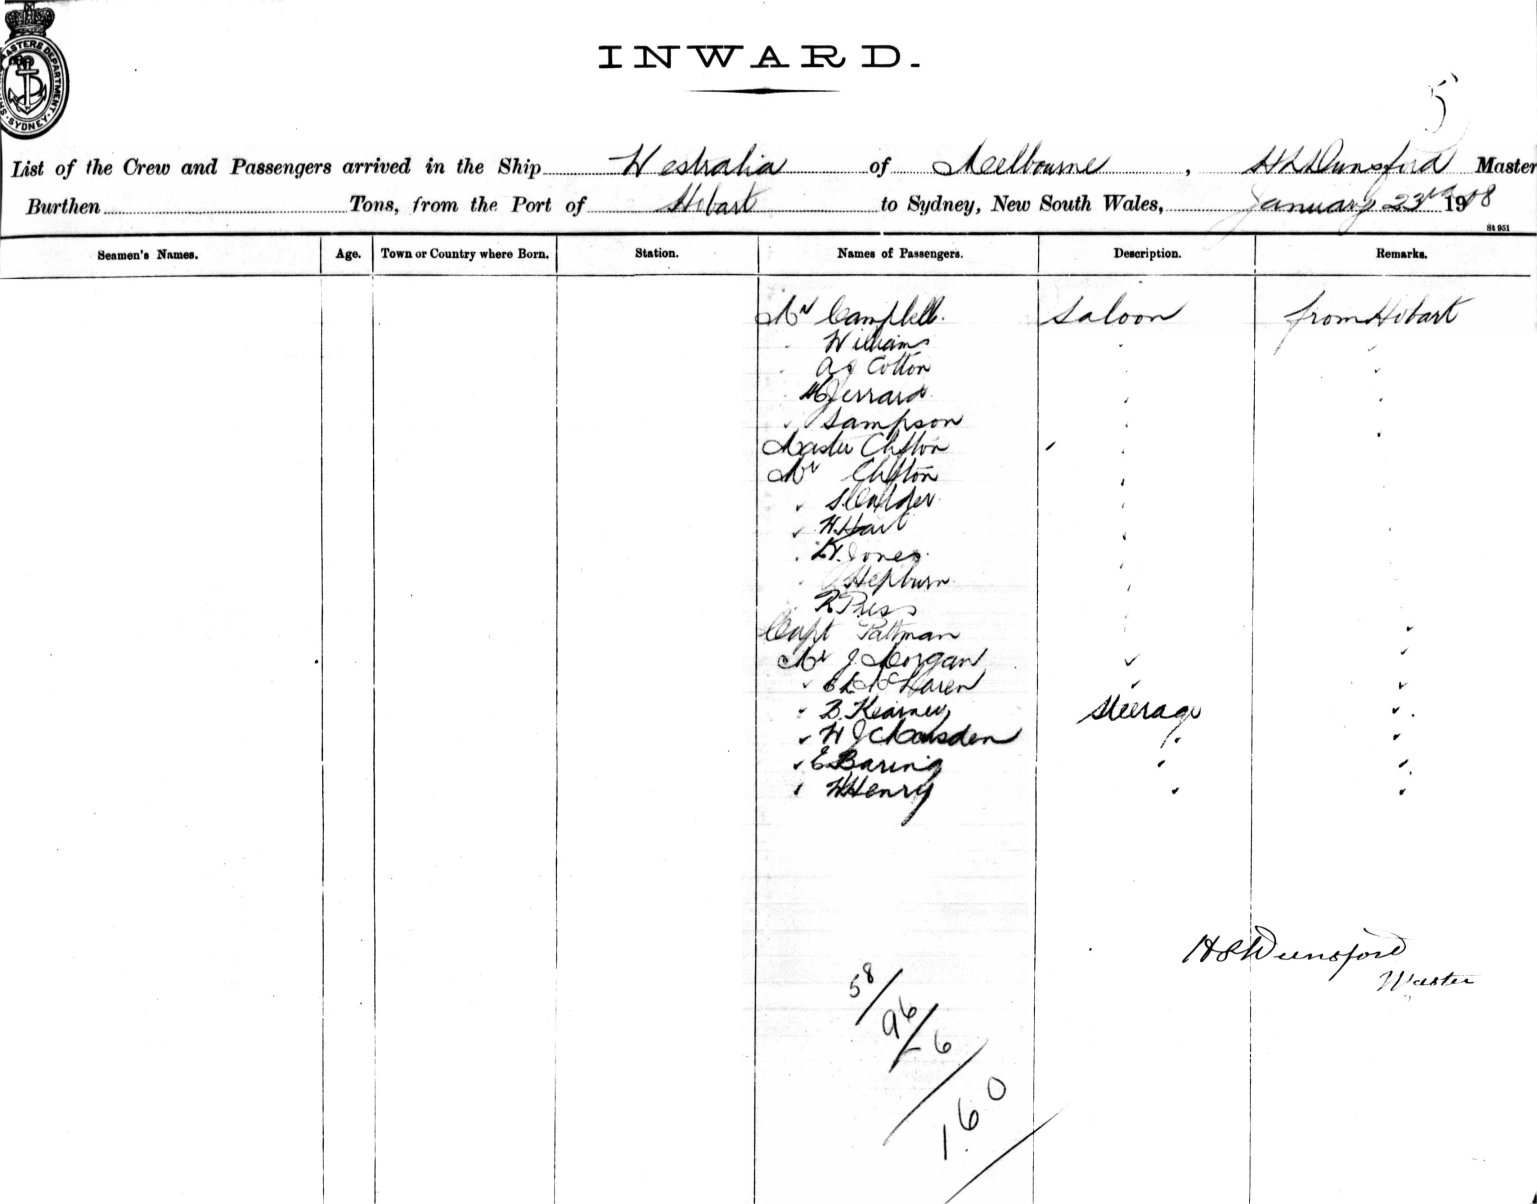 MASTERS DEPARTMENT
SYDNEY
INWARD.
5
List of the Crew and Passengers arrived in the Ship Westralia of Melbourne, Dunsford Master
Burthen Tons, from the Port of Hobart to Sydney, New South Wales, January 23rd 1908
St 951
Seamen's Names. Age. Town or Country where Born. Station. Names of Passengers. Description. Remarks.
Mr Campbell. Saloon from Hobart
Williams
Cotton
Jerrard
Sampson
Master Clifton
Mr Clifton
S. Calder
H. Hart
Jones
Hepburn
R Press
Capt Pattman
Mr J. Morgan
McLaren
B. Kearney Steerage
W J Marsden
E Baring
W Henry
Dunsford
Master
58
96
6
160